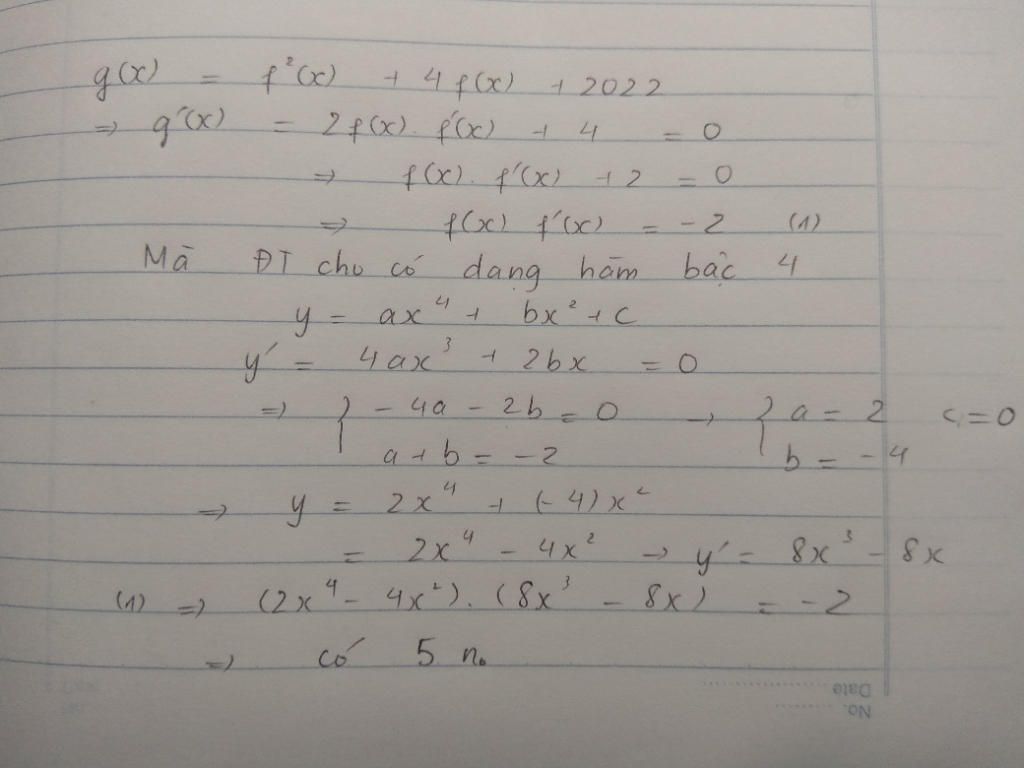 g(x) = f²(x) + 4f(x) + 2022
=> g'(x) = 2f(x). f'(x) + 4 = 0
=> f(x). f'(x) + 2 = 0
=> f(x) f'(x) = -2 (1)
Mà ĐT cho có dạng hàm bậc 4
y = ax⁴ + bx² + c
y' = 4ax³ + 2bx = 0
=> { -4a - 2b = 0 → { a = 2 c = 0
a + b = -2 b = -4
=> y = 2x⁴ + (-4)x²
= 2x⁴ - 4x² → y' = 8x³ - 8x
(1) => (2x⁴ - 4x²). (8x³ - 8x) = -2
=> có 5 n₀
Date
No.